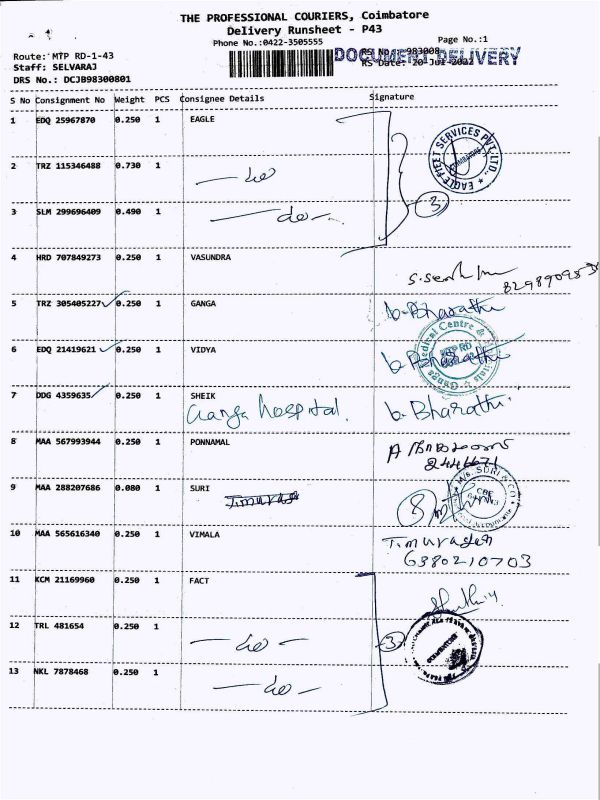 THE PROFESSIONAL COURIERS, Coimbatore
Delivery Runsheet - P43
Phone No.:0422-3505555
Page No.:1
Route: MTP RD-1-43
Staff: SELVARAJ
DRS No.: DCJB98300801
DOCUMENT DELIVERY
RS No. 983008
RS Date: 20-Jul-2022
S No Consignment No Weight PCS Consignee Details Signature
1 EDQ 25967870 0.250 1 EAGLE
EAGLE FLEET SERVICES PVT.LTD.
2 TRZ 115346488 0.730 1 do
3 SLM 299696409 0.490 1 do 3
4 HRD 707849273 0.250 1 VASUNDRA
5 TRZ 305405227 0.250 1 GANGA b. Bharathi
6 EDQ 21419621 0.250 1 VIDYA b. Bharathi
Ganga Medical Centre & Hospitals
MTP RD
7 DDG 4359635 0.250 1 SHEIK b. Bharathi
Ganga hospital.
8 MAA 567993944 0.250 1 PONNAMAL
9 MAA 288207686 0.080 1 SURI
M/s. SURI & CO
CBE
10 MAA 565616340 0.250 1 VIMALA T. Muragesh
6380210703
11 KCM 21169960 0.250 1 FACT
12 TRL 481654 0.250 1 do 3
COIMBATORE
13 NKL 7878468 0.250 1 do